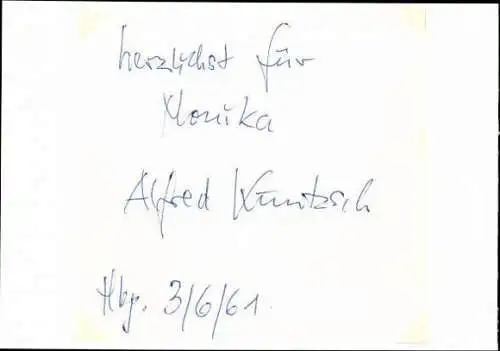 herzlichst für
Monika
Alfred Kunitzsch
Hbg. 3/6/61.